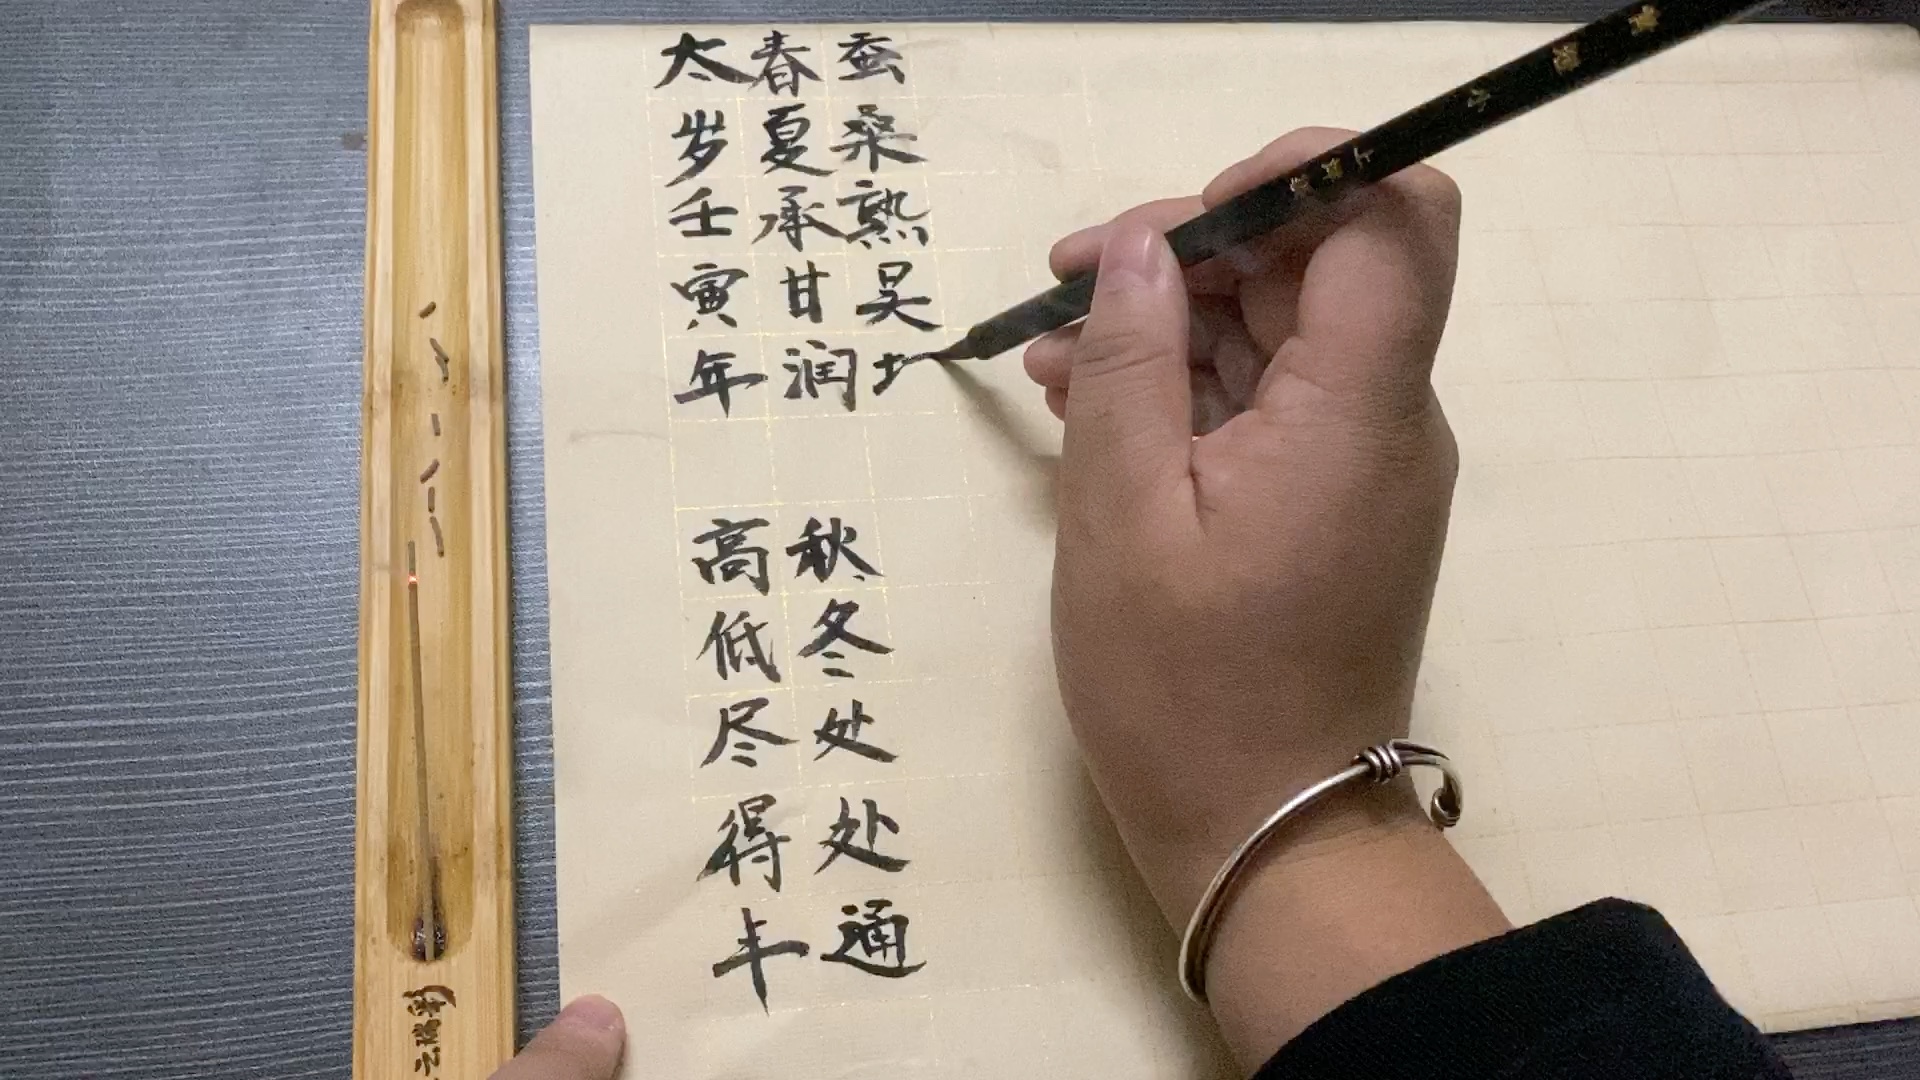 太岁壬寅年 高低尽得丰
春夏承甘润 秋冬处处通
蚕桑熟吴